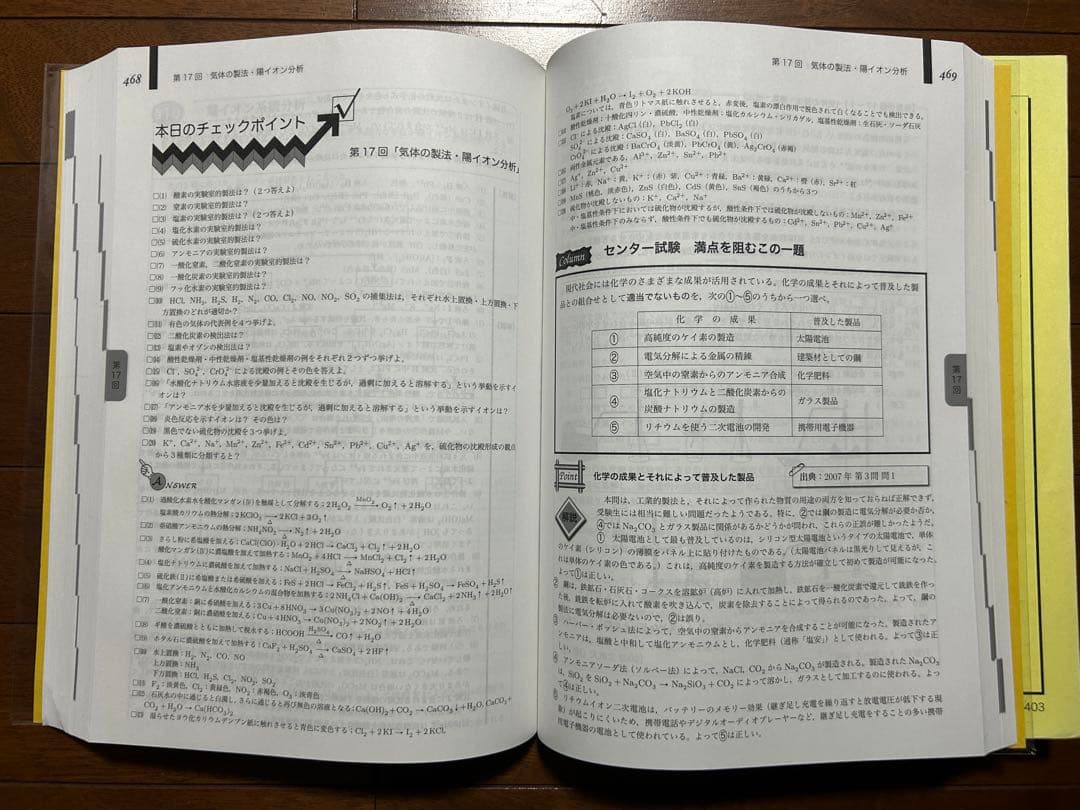 468
第17回 気体の製法・陽イオン分析
本日のチェックポイント
第17回「気体の製法・陽イオン分析」
□(1) 酸素の実験室的製法は？(2つ答えよ)
□(2) 窒素の実験室的製法は？
□(3) 塩素の実験室的製法は？(2つ答えよ)
□(4) 塩化水素の実験室的製法は？
□(5) 硫化水素の実験室的製法は？
□(6) アンモニアの実験室的製法は？
□(7) 一酸化窒素，二酸化窒素の実験室的製法は？
□(8) 一酸化炭素の実験室的製法は？
□(9) フッ化水素の実験室的製法は？
□(10) HCl, NH₃, H₂S, H₂, N₂, CO, Cl₂, NO, NO₂, SO₂の捕集法は，それぞれ水上置換・上方置換・下
方置換のどれが適切か？
□(11) 有色の気体の代表例を4つ挙げよ。
□(12) 二酸化炭素の検出法は？
□(13) 塩素やオゾンの検出法は？
□(14) 酸性乾燥剤・中性乾燥剤・塩基性乾燥剤の例をそれぞれ2つずつ挙げよ。
□(15) Cl⁻, SO₄²⁻, CrO₄²⁻による沈殿の例とその色を答えよ。
□(16) 「水酸化ナトリウム水溶液を少量加えると沈殿を生じるが，過剰に加えると溶解する」という挙動を示すイ
オンは？
□(17) 「アンモニア水を少量加えると沈殿を生じるが，過剰に加えると溶解する」という挙動を示すイオンは？
□(18) 炎色反応を示すイオンは？ その色は？
□(19) 黒色でない硫化物の沈殿を3つ挙げよ。
□(20) K⁺, Ca²⁺, Na⁺, Mn²⁺, Zn²⁺, Fe²⁺, Cd²⁺, Sn²⁺, Pb²⁺, Cu²⁺, Ag⁺を，硫化物の沈殿形成の観点
から3種類に分類すると？
第17回
ANSWER
□(1) 過酸化水素水を酸化マンガン(Ⅳ)を触媒として分解する：2H₂O₂ —MnO₂→ O₂↑+2H₂O
塩素酸カリウムの熱分解：2KClO₃ —△→ 2KCl+3O₂↑
□(2) 亜硝酸アンモニウムの熱分解：NH₄NO₂ —△→ N₂↑+2H₂O
□(3) さらし粉に希塩酸を加える：CaCl(ClO)・H₂O+2HCl→CaCl₂+Cl₂↑+2H₂O
酸化マンガン(Ⅳ)に濃塩酸を加えて加熱する：MnO₂+4HCl —△→ MnCl₂+Cl₂↑+2H₂O
□(4) 塩化ナトリウムに濃硫酸を加えて加熱する：NaCl+H₂SO₄ —△→ NaHSO₄+HCl↑
□(5) 硫化鉄(Ⅱ)に希塩酸または希硫酸を加える：FeS+2HCl→FeCl₂+H₂S↑，FeS+H₂SO₄→FeSO₄+H₂S↑
□(6) 塩化アンモニウムと水酸化カルシウムの混合物を加熱する：2NH₄Cl+Ca(OH)₂ —△→ CaCl₂+2NH₃↑+2H₂O
□(7) 一酸化窒素：銅に希硝酸を加える：3Cu+8HNO₃→3Cu(NO₃)₂+2NO↑+4H₂O
二酸化窒素：銅に濃硝酸を加える：Cu+4HNO₃→Cu(NO₃)₂+2NO₂↑+2H₂O
□(8) ギ酸を濃硫酸とともに加熱して脱水する：HCOOH —H₂SO₄ △→ CO↑+H₂O
□(9) ホタル石に濃硫酸を加えて加熱する：CaF₂+H₂SO₄ —△→ CaSO₄+2HF↑
□(10) 水上置換：H₂, N₂, CO, NO
上方置換：NH₃
下方置換：HCl, H₂S, Cl₂, NO₂, SO₂
□(11) F₂：淡黄色，Cl₂：黄緑色，NO₂：赤褐色，O₃：淡青色
□(12) 石灰水の中に通じると白濁し，さらに通じると再び無色の溶液となる：Ca(OH)₂+CO₂→CaCO₃↓+H₂O, CaCO₃+
CO₂+H₂O→Ca(HCO₃)₂
□(13) 湿らせたヨウ化カリウムデンプン紙に触れさせると青色に変色する：Cl₂+2KI→I₂+2KCl,
第17回 気体の製法・陽イオン分析
469
O₃+2KI+H₂O→I₂+O₂+2KOH
塩素については，青色リトマス紙に触れさせると，赤変後，塩素の漂白作用で脱色されて白くなることでも検出できる。
□(14) 酸性乾燥剤：十酸化四リン・濃硫酸，中性乾燥剤：塩化カルシウム・シリカゲル，塩基性乾燥剤：生石灰・ソーダ石灰
□(15) Cl⁻による沈殿：AgCl(白)，PbCl₂(白)
SO₄²⁻による沈殿：CaSO₄(白)，BaSO₄(白)，PbSO₄(白)
CrO₄²⁻による沈殿：BaCrO₄(淡黄)，PbCrO₄(黄)，Ag₂CrO₄(赤褐)
□(16) 両性金属元素である，Al³⁺, Zn²⁺, Sn²⁺, Pb²⁺
□(17) Ag⁺, Zn²⁺, Cu²⁺
□(18) Li⁺：赤，Na⁺：黄，K⁺：(赤)紫，Cu²⁺：青緑，Ba²⁺：黄緑，Ca²⁺：橙(赤)，Sr²⁺：紅
□(19) MnS(桃色，淡赤色)，ZnS(白色)，CdS(黄色)，SnS(褐色)のうちから3つ
□(20) 硫化物が沈殿しないもの：K⁺, Ca²⁺, Na⁺
中・塩基性条件下においては硫化物が沈殿するが，酸性条件下では硫化物が沈殿しないもの：Mn²⁺, Zn²⁺, Fe²⁺
中・塩基性条件下のみならず，酸性条件下でも硫化物が沈殿するもの：Cd²⁺, Sn²⁺, Pb²⁺, Cu²⁺, Ag⁺
Column
センター試験 満点を阻むこの一題
現代社会には化学のさまざまな成果が活用されている。化学の成果とそれによって普及した製
品との組合せとして適当でないものを，次の①～⑤のうちから一つ選べ。
化学の成果 普及した製品
① 高純度のケイ素の製造 太陽電池
② 電気分解による金属の精錬 建築材としての鋼
③ 空気中の窒素からのアンモニア合成 化学肥料
④ 塩化ナトリウムと二酸化炭素からの
炭酸ナトリウムの製造 ガラス製品
⑤ リチウムを使う二次電池の開発 携帯用電子機器
第17回
Point
化学の成果とそれによって普及した製品
出典：2007年 第3問 問1
解説
本問は，工業的製法と，それによって作られた物質の用途の両方を知っておらねば正解できず，
受験生には相当に難しい問題だったようである。特に，②では鋼の製造に電気分解が必要か否か，
④ではNa₂CO₃とガラス製品に関係があるかどうかが問われ，これらの正誤が難しかったようだ。
① 太陽電池として最も普及しているのは，シリコン型太陽電池というタイプの太陽電池で，単体
のケイ素(シリコン)の薄膜をパネル上に貼り付けたものである。(太陽電池パネルは黒光りして見えるが，こ
れは単体のケイ素の色である。)これは，高純度のケイ素を製造する方法が確立して初めて製造が可能になった。
よって①は正しい。
② 鋼は，鉄鉱石・石灰石・コークスを溶鉱炉(高炉)に入れて加熱し，鉄鉱石を一酸化炭素で還元して銑鉄を作っ
た後，銑鉄を転炉に入れて酸素を吹き込んで，炭素を除去することによって得られるのであった。よって，鋼の
製法に電気分解は必要ないので，②は誤り。
③ ハーバー・ボッシュ法によって，空気中の窒素からアンモニアを合成することが可能になった。製造されたア
ンモニアは，塩酸と中和して塩化アンモニウムとし，化学肥料(通称「塩安」)として使われる。よって③は正
しい。
④ アンモニアソーダ法(ソルベー法)によって，NaCl, CO₂からNa₂CO₃が製造される。製造されたNa₂CO₃
は，SiO₂をSiO₂+Na₂CO₃→Na₂SiO₃+CO₂によって溶かし，ガラスとして加工するのに使われる。よっ
て④は正しい。
⑤ リチウムイオン二次電池は，バッテリーのメモリー効果(継ぎ足し充電を繰り返すと放電電圧が低下する現
象)が起こりにくいため，携帯電話やデジタルオーディオプレーヤーなど，継ぎ足し充電をすることの多い携帯
用電子機器の電池として使われている。よって⑤は正しい。
403